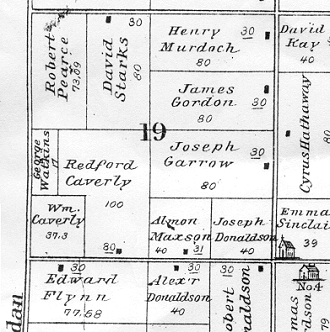 Robert
Pearce
73,09
30
David
Starks
80
Henry 30
Murdoch
80
David
Kay
40
James
Gordon 30
80
19
Joseph
Garrow 30
80
Cyrus Hathaway
80
George
Watkins
Redford
Caverly
100
80
Wm.
Caverly
37.3
Almon
Maxson
40 31
Joseph
Donaldson
40
Emma
Sinclair
39
30
Edward
Flynn
77.68
30
Alex'r
Donaldson
40
30
Donaldson
No.4